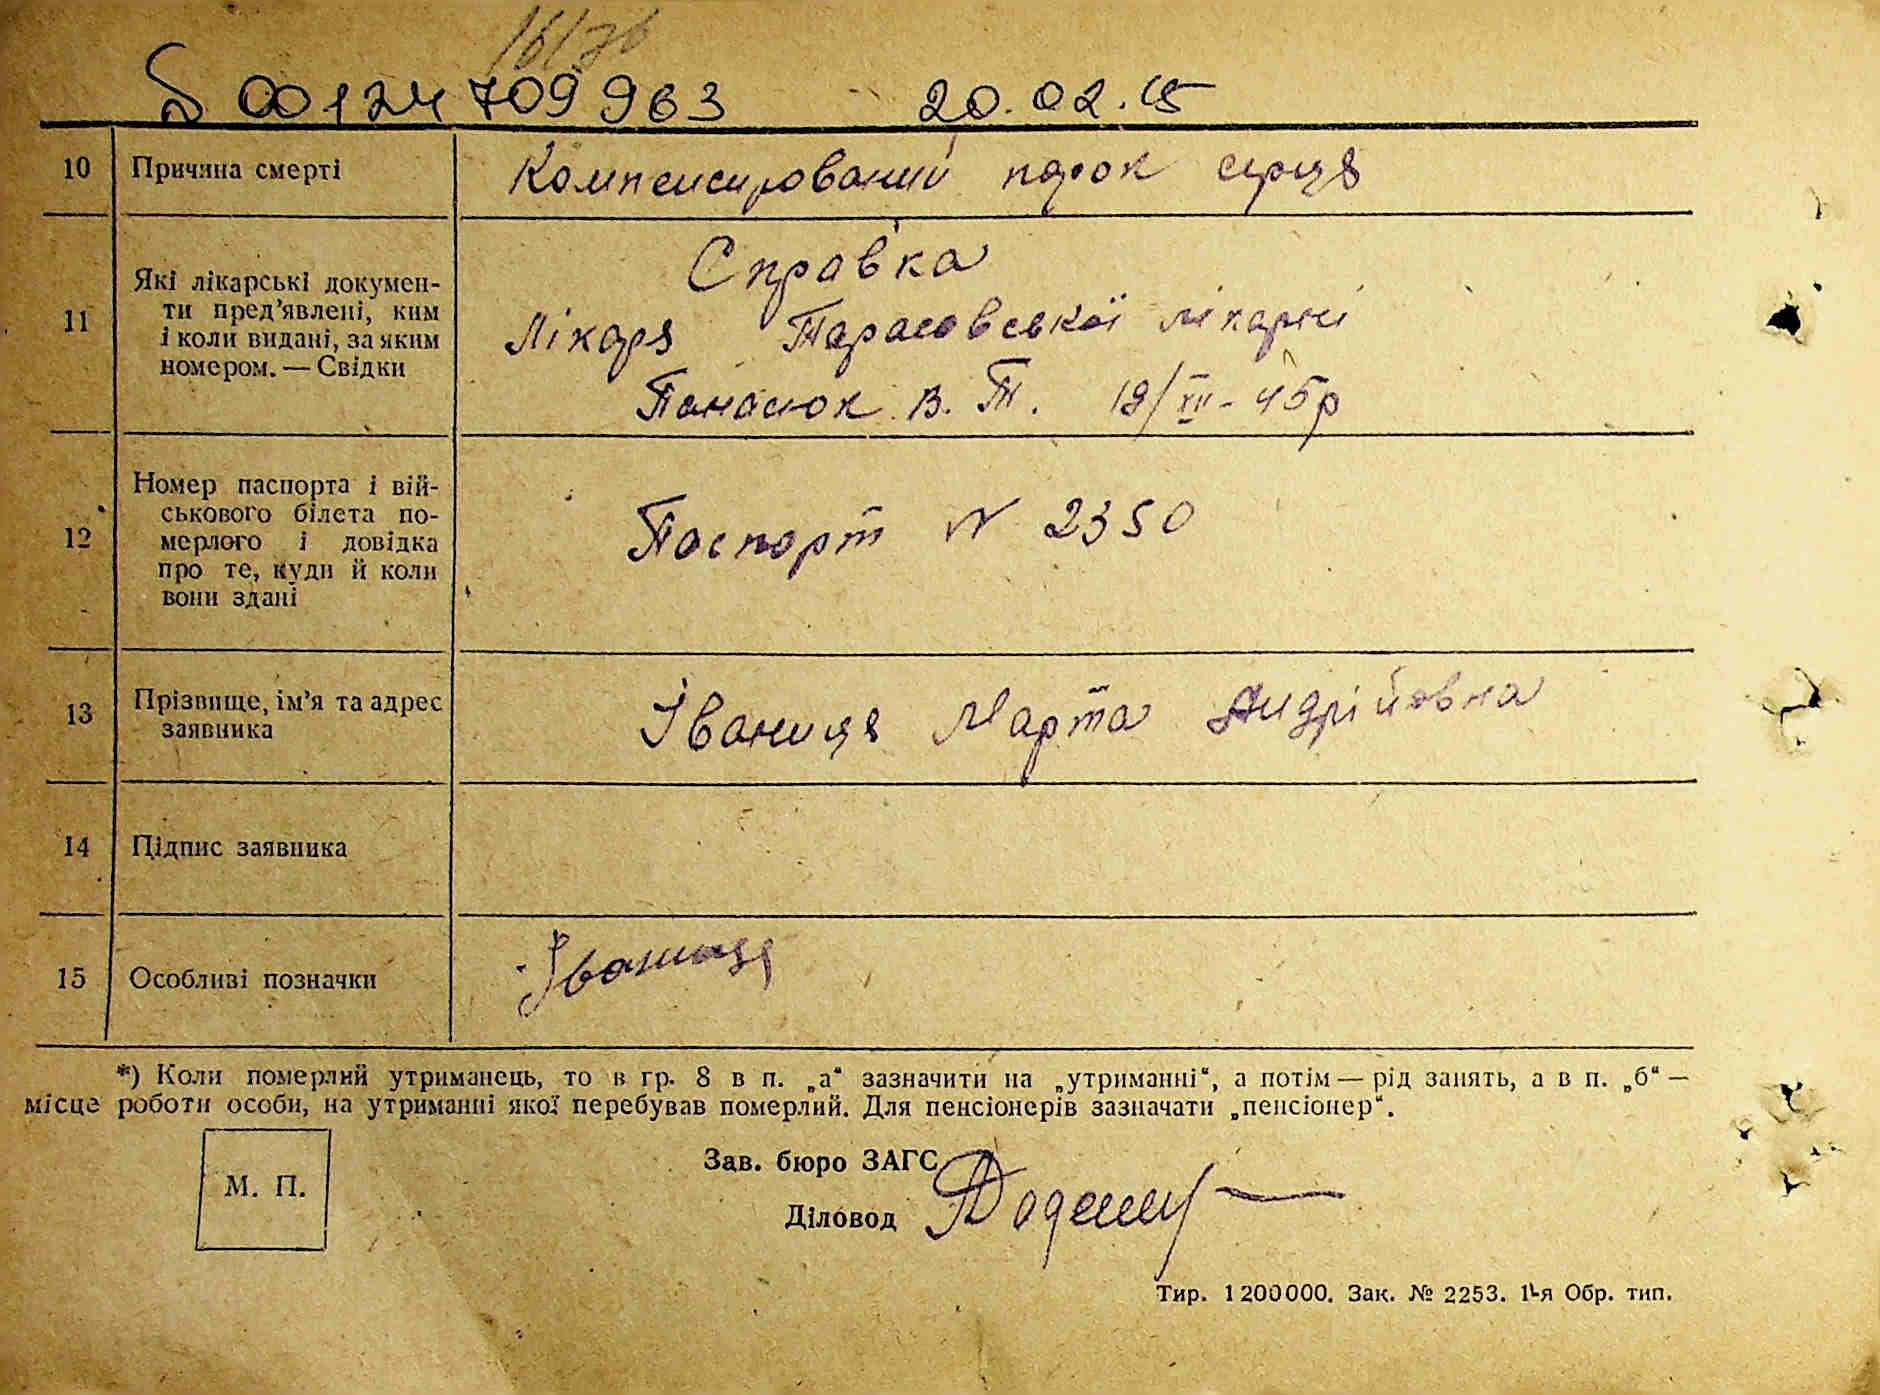 00124709963 20.02.15
10 Причина смерті Компенсирований порок серця
11 Які лікарські докумен-
ти пред’явлені, ким
і коли видані, за яким
номером. — Свідки
Справка
Лікаря Тарасовської лікарні
Панасюк В. Т. 19/XII - 45р
12 Номер паспорта і вій-
ськового білета по-
мерлого і довідка
про те, куди й коли
вони здані
Паспорт N 2350
13 Прізвище, ім’я та адрес
заявника
Іваниця Марта Андрійовна
14 Підпис заявника
15 Особливі позначки Іваниця
*) Коли померлий утриманець, то в гр. 8 в п. „а“ зазначити на „утриманні“, а потім — рід занять, а в п. „б“ —
місце роботи особи, на утриманні якої перебував померлий. Для пенсіонерів зазначати „пенсіонер“.
М. П.
Зав. бюро ЗАГС
Діловод
Тир. 1200000. Зак. № 2253. 1-я Обр. тип.